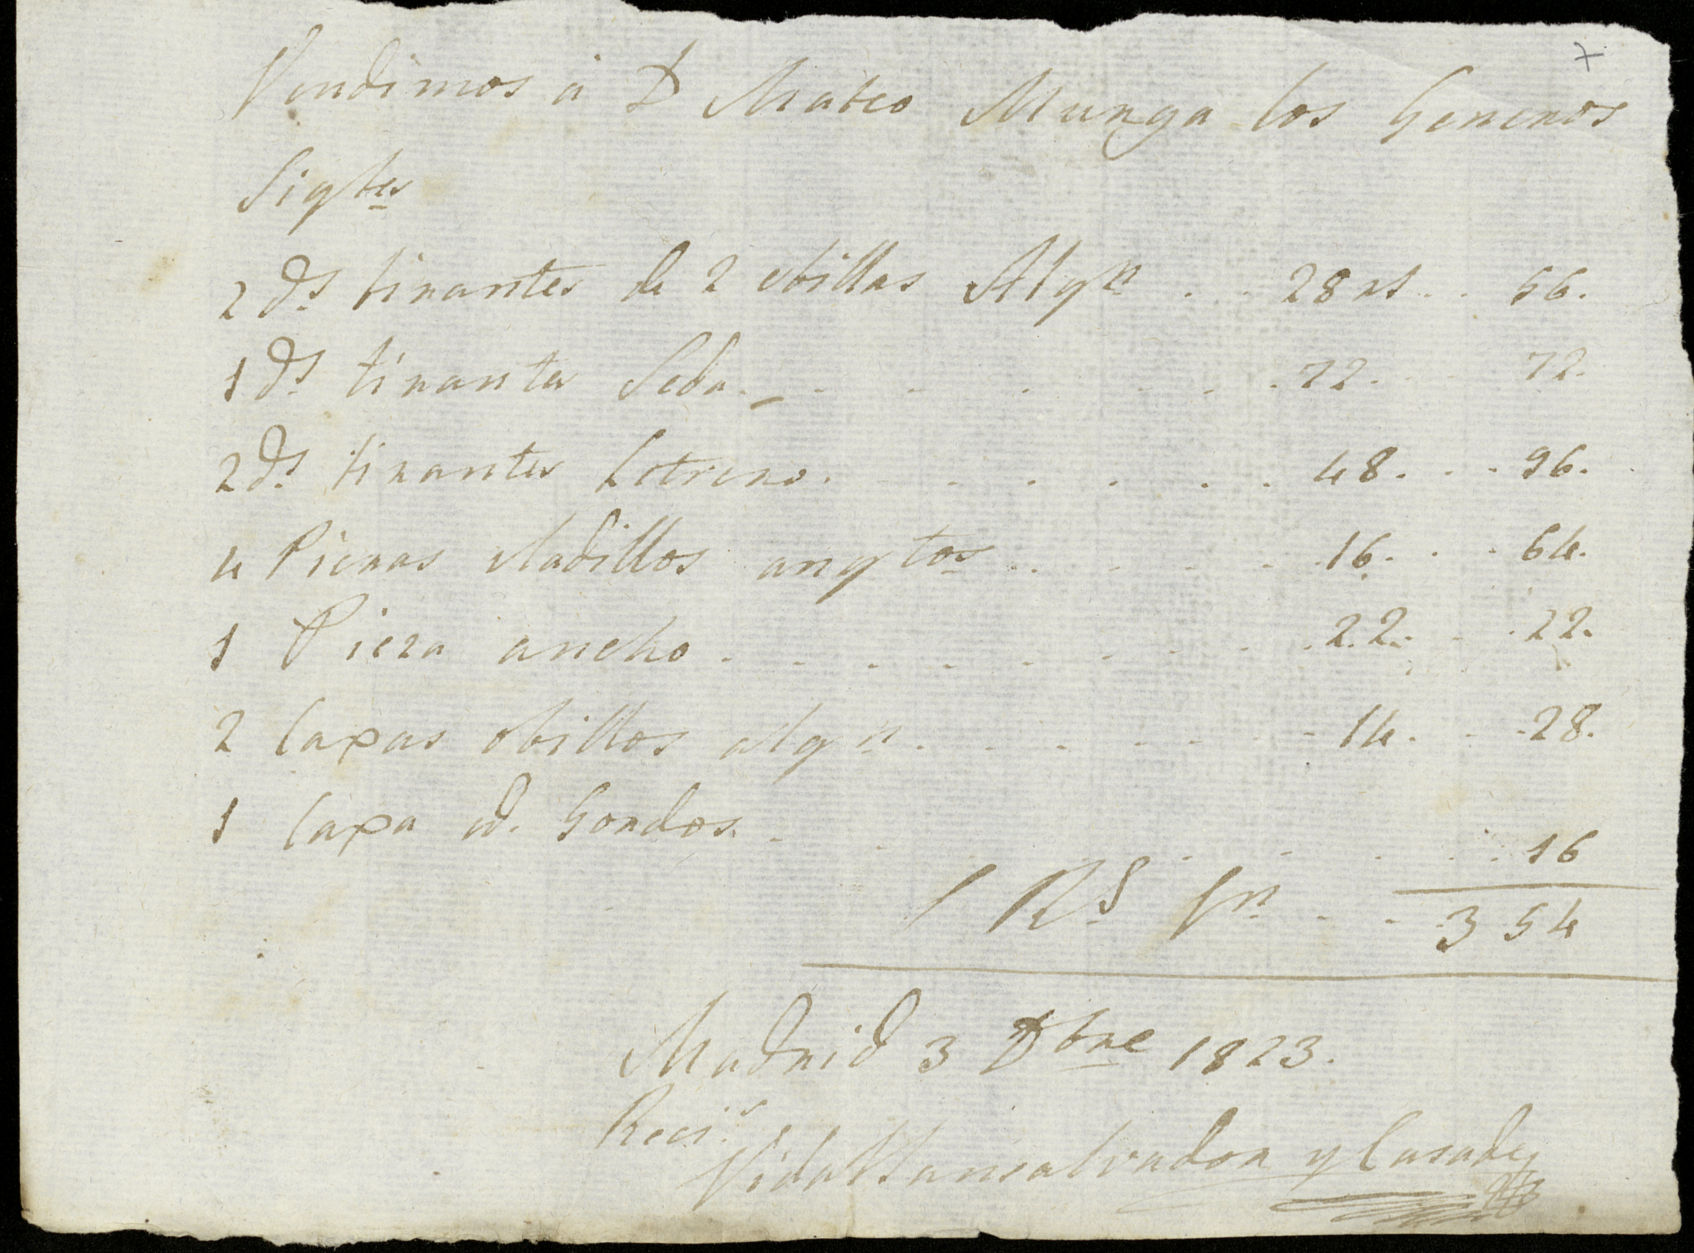 Vendimos á D Mateo Munga los Generos
Sigtes
2 ds tirantes de 2 obillas Algn . . 28 rs . . 56.
1 ds tirantes Seda . . . . . 72. . . 72.
2 ds tirantes Letrero . . . . . . 48. . . 96.
4 Piezas Madillos angtos . . . . . 16. . . 64.
1 Pieza ancho . . . . . . . . 22. . . 22.
2 Caxas obillos algn . . . . . . 14. . . 28.
1 Caxa id. Gordos . . . . . . 16
Rs Vn . . . 354
Madrid 3 Dbre 1823.
Reci.
Vidal Sansalvador y Casades